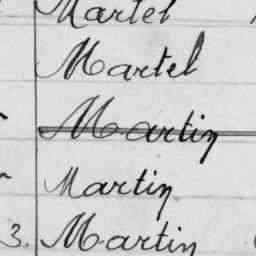 Martel
Martel
Martin
Martin
3. Martin